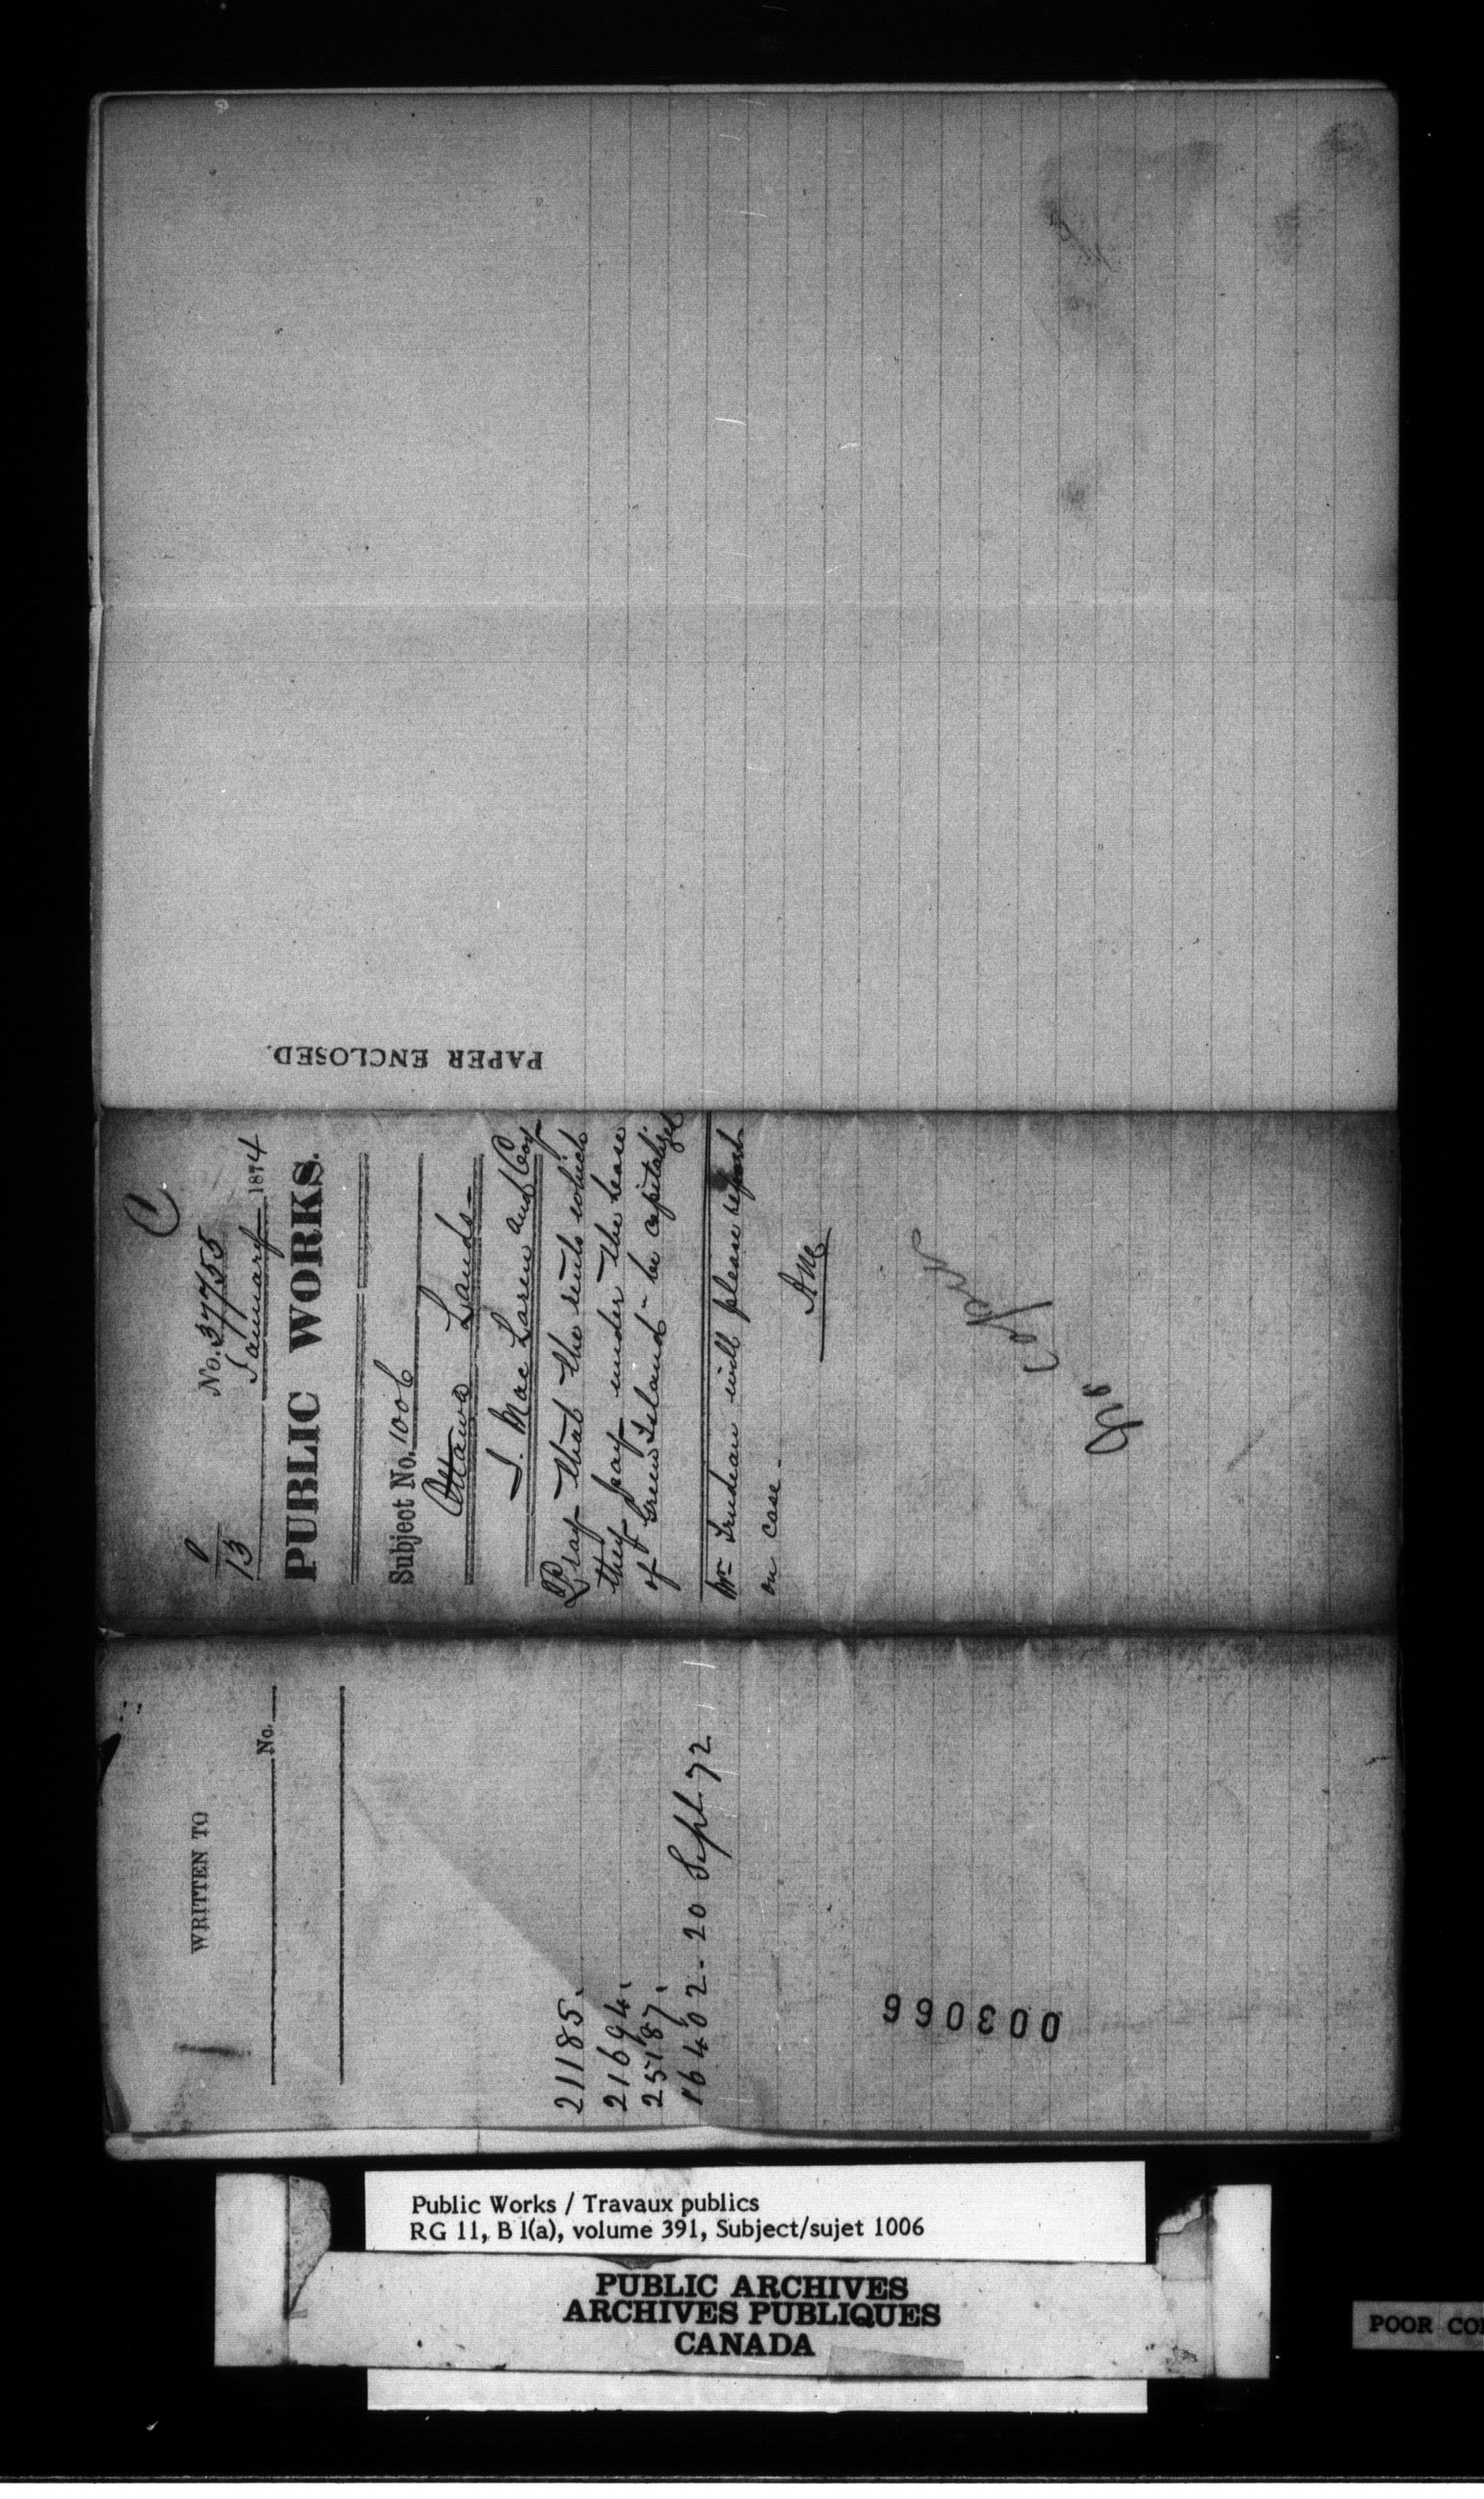 PAPER ENCLOSED.
C
No. 37755
13 January 1874
PUBLIC WORKS.
Subject No. 1006
Ottawa Lands-
J. Mac Laren and Coy
Pray that the rents which
they pay under the lease
of Green Island - be capitalized
Mr Trudeau will please report
on case -
AM
WRITTEN TO
No.
21185.
21694.
25187.
16402 - 20 Sept. 72
003066
Public Works / Travaux publics
RG 11, B 1(a), volume 391, Subject/sujet 1006
PUBLIC ARCHIVES
ARCHIVES PUBLIQUES
CANADA
POOR CO